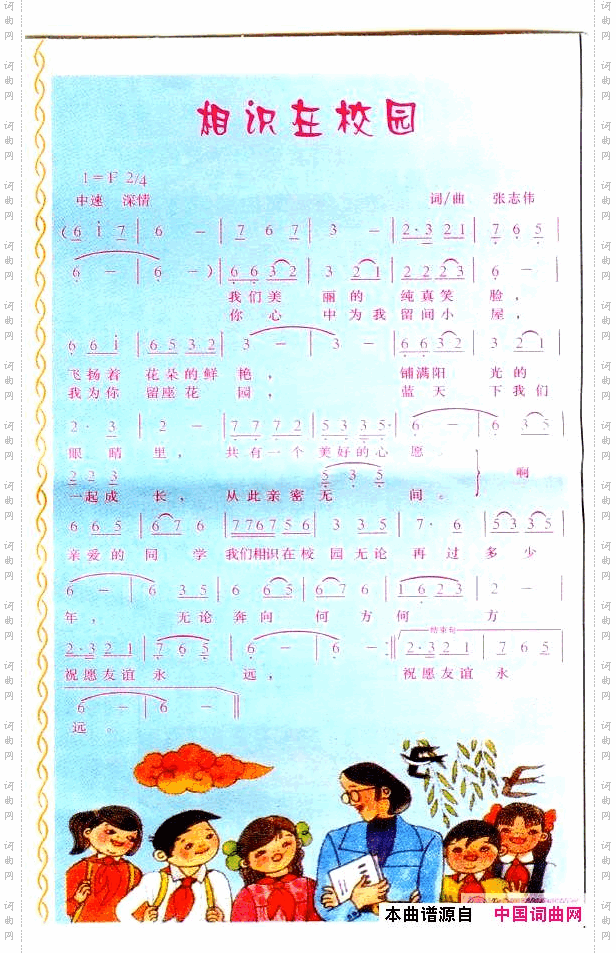 相识在校园
1=F 2/4
中速 深情 词/曲 张志伟
(6 i 7 | 6 - | 7 6 7 | 3 - | 2·3 2 1 | 7 6 5 |
6 - | 6 - ) | 6 6 3 2 | 3 2 1 | 2 2 2 3 | 6 - |
我们美 丽的 纯真笑 脸，
你心 中为我 留间小 屋，
6 6 i | 6 5 3 2 | 3 - | 3 - | 6 6 3 2 | 3 2 1 |
飞扬着 花朵的鲜 艳， 铺满阳 光的
我为你 留座花 园， 蓝天 下我们
2· 3 | 2 - | 7 7 7 2 | 5 3 3 5· | 6 - | 6 3 5 |
眼睛 里， 共有一个 美好的心 愿。
2 2 3 5 3 5
一起成 长， 从此亲密无 间。 啊
6 6 5 | 6 7 6 | 7 7 6 7 5 6 | 3 3 5 | 7· 6 | 5 3 3 5 |
亲爱的 同学 我们相识在校 园无论 再过 多少
6 - | 6 3 5 | 6 6 5 | 6 7 6 | 1 6 2 3 | 2 - |
年， 无论 奔向 何方 何 方
结束句
2·3 2 1 | 7 6 5 | 6 - | 6 - :‖ 2·3 2 1 | 7 6 5 |
祝愿友谊 永 远， 祝愿友谊 永
6 - | 6 - ‖
远。
本曲谱源自 中国词曲网
词曲网
词曲网
词曲网
词曲网
词曲网
词曲网
词曲网
词曲网